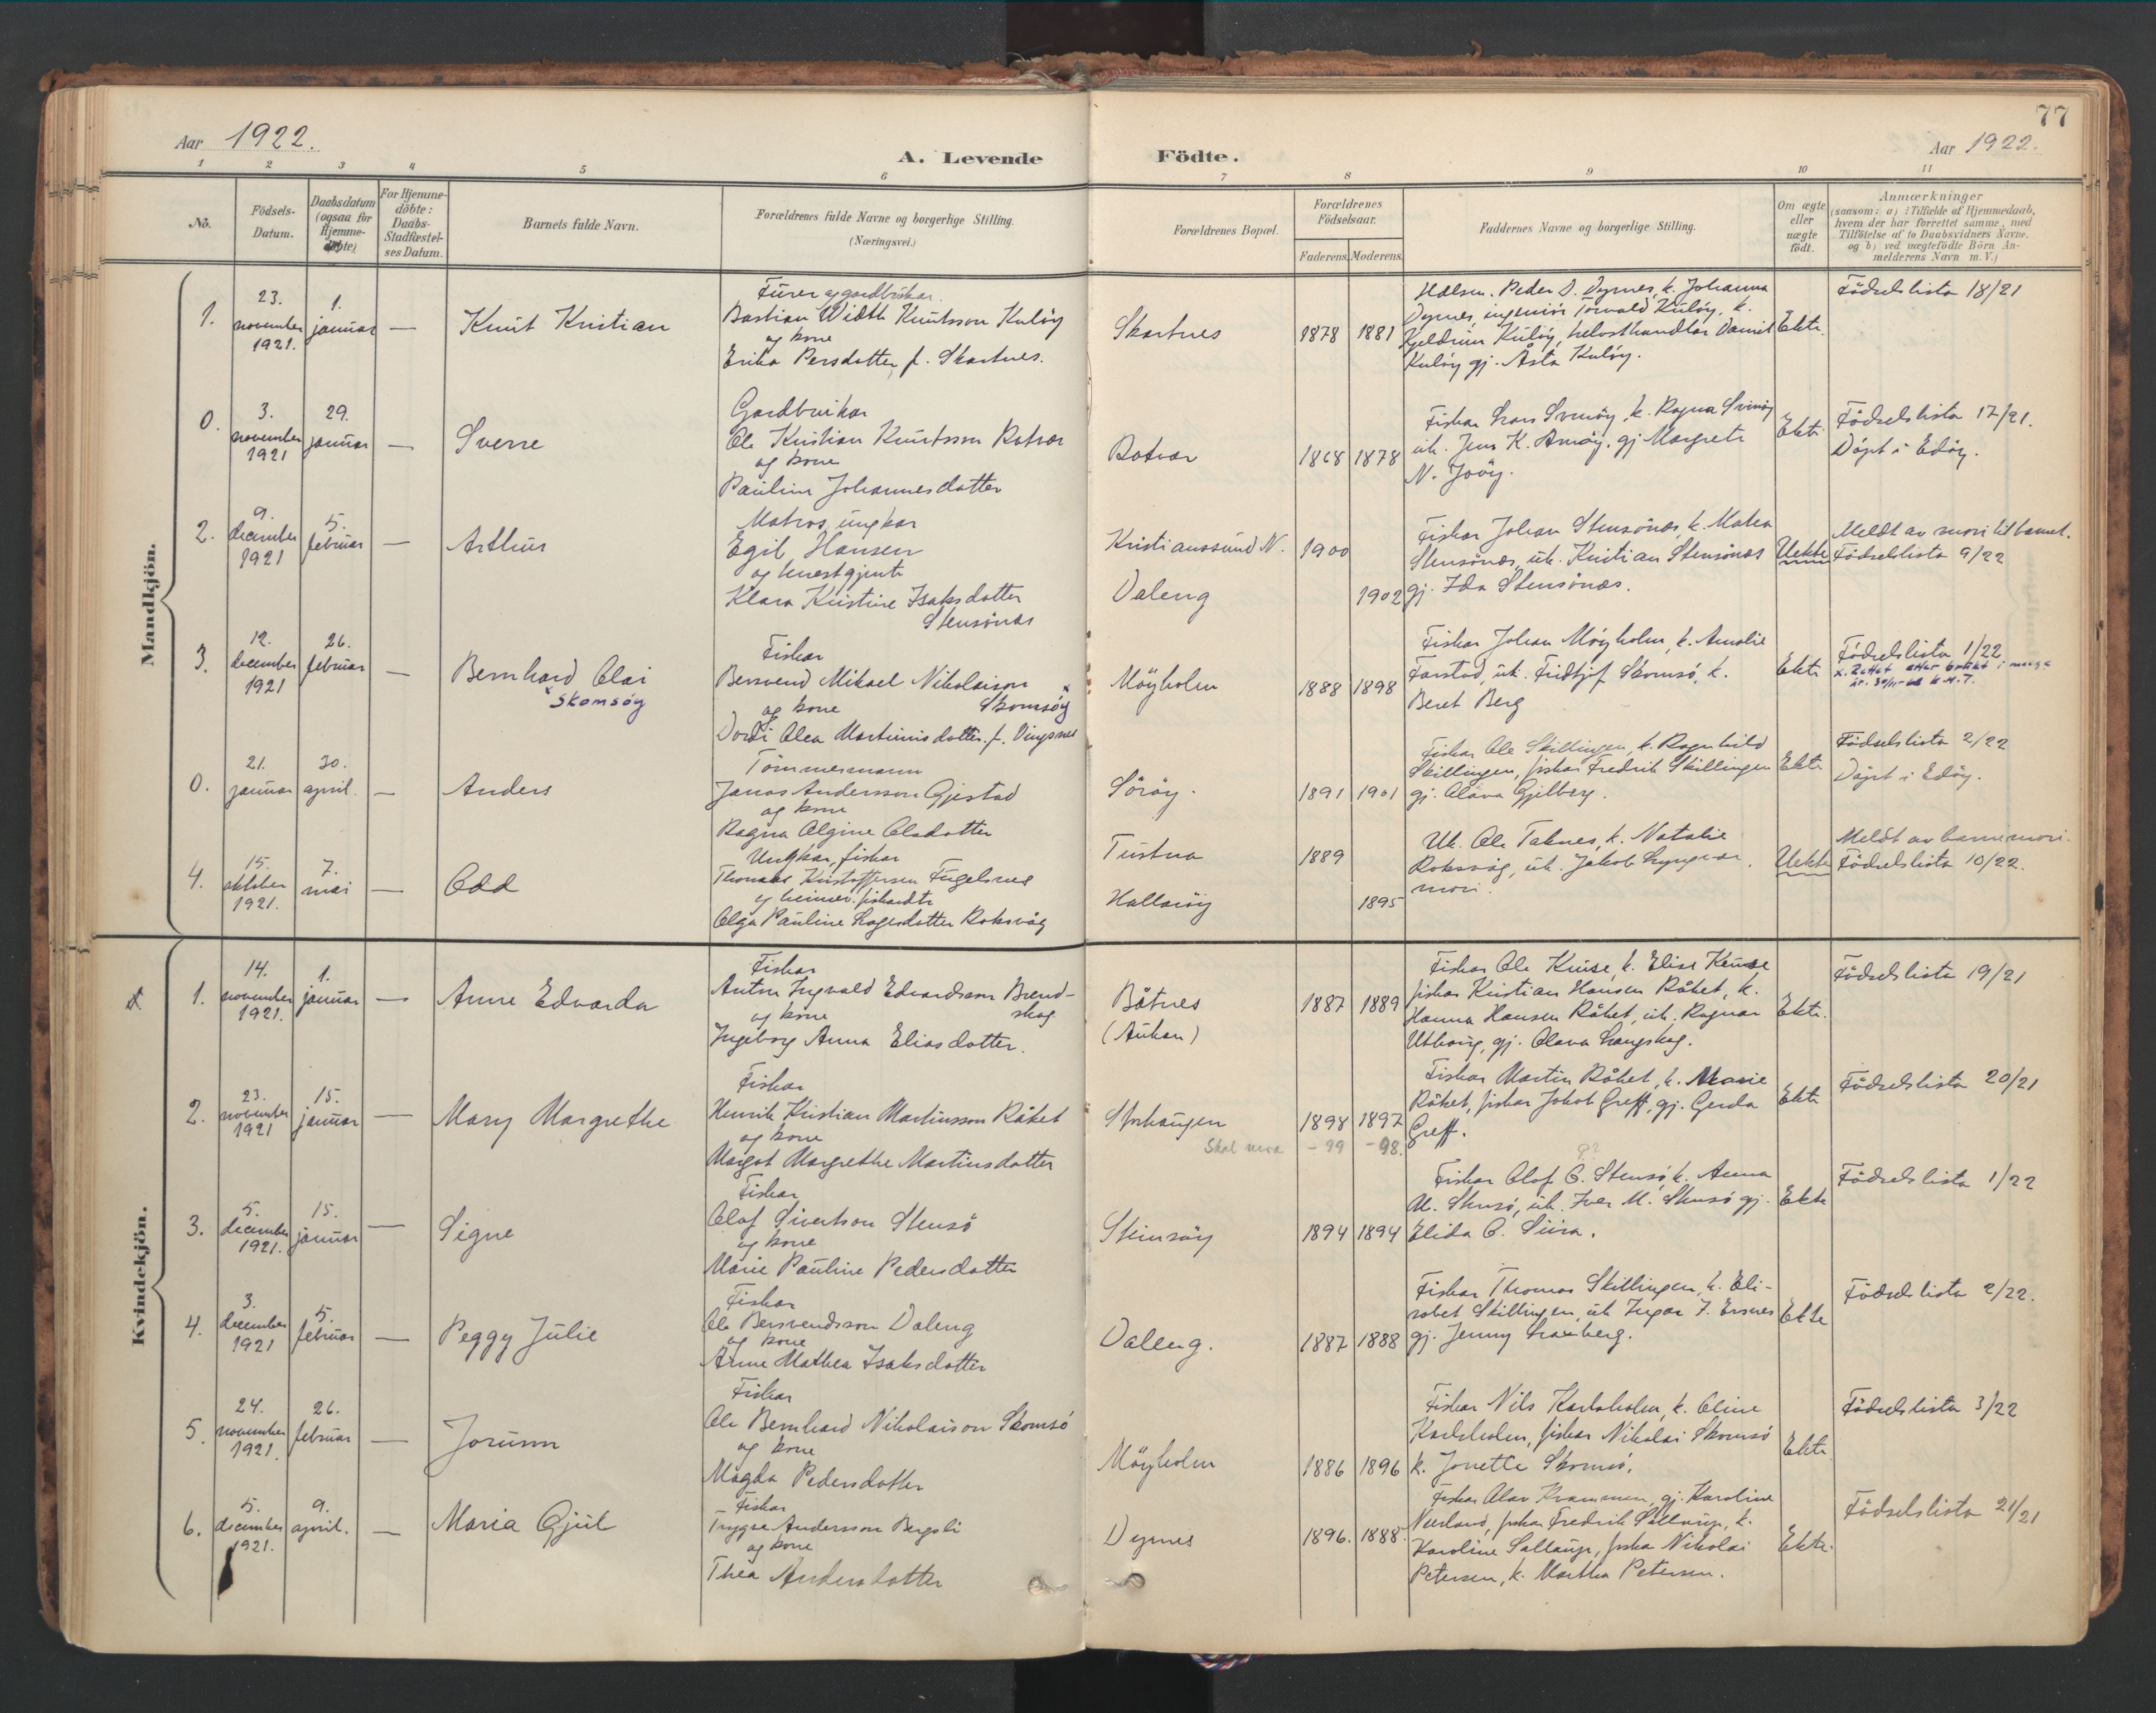 77
Aar 1922.
A. Levende Födte.
Aar 1922.
1 2 3 4 5 6 7 8 9 10 11
No.
Födsels-
Datum.
Daabsdatum
(ogsaa for
Hjemme-
døbte)
For Hjemme-
döbte:
Daabs-
Stadfæstel-
ses Datum.
Barnets fulde Navn.
Forældrenes fulde Navne og borgerlige Stilling.
(Næringsvei.)
Forældrenes Bopæl.
Forældrenes
Födselsaar.
Faderens. Moderens.
Faddernes Navne og borgerlige Stilling.
Om ægte
eller
uægte
födt.
Anmærkninger
(saasom: a) i Tilfælde af Hjemmedaab,
hvem der har forrettet samme, med
Tilföielse af to Daabsvidners Navne.
og b) ved uægtefödte Börn An-
melderens Navn m. V.)
Mandkjön.
1.
23.
november
1921.
1.
januar
—
Knut Kristian
Furer og gardbrukar.
Bastian Width Knutsson Kulöy
og kone
Erika Persdotter f. Skartnes.
Skartnes
1878 1881
Peder D. Dyrnes, k. Johanna
Dyrnes, ingeniör Torvald Kulöy, k.
Kulöy gj. Åsta Kulöy.
Ekte.
Födselslista 18/21
0.
3.
november
1921
29.
januar
—
Sverre
Gardbrukar
Ole Kristian Knutsson Rotvar
og kone
Pauline Johannesdotter
Rotvar
1868 1878
Fiskar Lars Svinöy, k. Ragna Svinöy
uk. Jens K. Arnöy, gj. Margrete
N. Joöy.
Ekte.
Födselslista 17/21.
Döpt i Edöy.
2.
9.
december
1921
5.
februar
—
Arthur
Matros, ungkar
Egil Hansen
og tenestgjente
Klara Kristine Isaksdotter
Stensönes
Kristianssund N.
Daleng
1900
1902
Fiskar Johan Stensönes, k. Matea
Stensönes, uk. Kristian Stensönes
gj. Ida Stensönes.
Uekte
Meldt av mori til barnet.
Födselslista 9/22
3.
12.
december
1921
26.
februar
—
Bernhard Olai
x Skomsøy
Fiskar
Bersvend Mikael Nikolaison x
og kone Skomsøy
Dordi Olea Martinusdotter f. Vingsnes
Möyholm
1888 1898
Fiskar Johan Möyholm, k. Amalie
Farstad, uk. Fridtjof Skomsö, k.
Beret Berg
Ekte
Födselslista 1/22
0.
21.
januar
30.
april.
—
Anders
Tömmermann
Jonas Andersson Gjestad
og kone
Ragna Olgine Olsdotter
Söröy.
1891 1901
Fiskar Ole Skillingen, k. Ragnhild
Skillingen, fiskar Fredrik Skillingen
gj. Olava Gjelberg.
Ekte.
Födselslista 2/22
Döpt i Edöy.
4.
15.
oktober
1921.
7.
mai
—
Odd
Ungkar, fiskar
Thomas Kristoffersen Fugelsnes
og heimev. fiskardtr
Olga Pauline Lagesdotter Roksvåg
Tustna
Hallaröy
1889
1895
Uk. Ole Taknes, k. Natalie
Roksvåg, uk. Jakob Lyngvær,
mori.
Uekte
Meldt av barnemori.
Födselslista 10/22.
Kvindekjön.
1.
14.
november
1921.
1.
januar
—
Anne Edvarda
Fiskar
Anton Ingvald Edvardsson Brend-
og kone skag
Ingeborg Anna Eliasdotter.
Båtnes
(Aukan)
1887 1889
Fiskar Ole Kruse, k. Elise Kruse
fiskar Kristian Hansen Råket, k.
Hanna Hansen Råket, uk. Ragnar
Uthaug, gj. Olava Langskog.
Ekte.
Födselslista 19/21
2.
23.
november
1921
15.
januar
—
Mary Margrethe
Fiskar
Henrik Kristian Martinsson Råket
og kone
Margot Margrethe Martinsdotter
Storhaugen
Skal vera
1898 1897
– 99 – 98.
Fiskar Martin Råket, k. Marie
Råket, fiskar Jakob Greff, gj. Gerda
Greff.
Ekte
Födselslista 20/21
3.
5.
december
1921.
15.
januar
—
Signe
Fiskar
Olaf Sivertson Stensö
og kone
Marie Pauline Pedersdotter
Steinsöy
1894 1894
P?
Fiskar Olof O. Stensö, k. Anna
M. Stensö, uk. Iver M. Stensö gj.
Elida O. Siira.
Ekte
Födselslista 1/22
4.
3.
december
1921
5.
februar
—
Peggy Julie
Fiskar
Ole Bersvendsson Daleng
og kone
Anne Mathea Isaksdotter
Daleng.
1887 1888
Fiskar Thomas Skillingen, k. Eli-
sabet Skillingen, uk Ingar J. Ersnes
gj. Jenny Laxberg.
Ekte
Födselslista 2/22.
5.
24.
november
1921.
26.
februar
—
Jorunn
Fiskar
Ole Bernhard Nikolaison Skomsö
og kone
Magda Pedersdotter
Möyholm
1886 1896
Fiskar Nils Karlsholm, k. Oline
Karlsholm, fiskar Nikolai Skomsö
k. Jonette Skomsö.
Ekte
Födselslista 3/22
6.
5.
december
1921.
9.
april.
—
Maria Gjül
Fiskar
Trygve Andersson Bergsli
og kone
Thea Andersdotter
Dyrnes
1896. 1888.
Fiskar Olav Krammen, gj. Karoline
Neeland, fiskar Fredrik Saltaug, k.
Karoline Saltaug, fiskar Nikolai
Petersen, k. Martha Petersen.
Ekte.
Födselslista 21/21